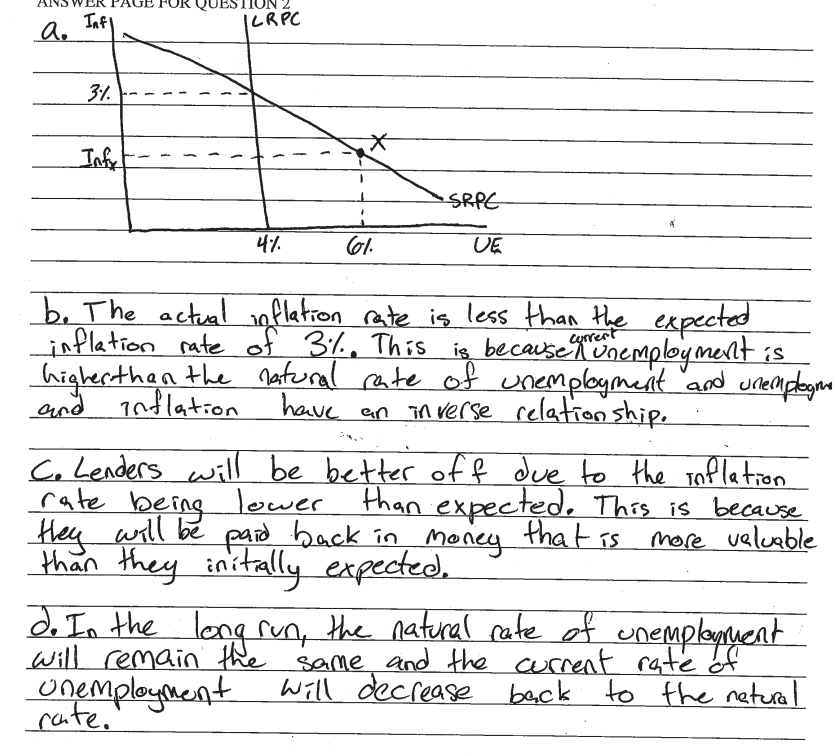 ANSWER PAGE FOR QUESTION 2
a. Inf LRPC
3%
X
Infx
SRPC
4% 6% UE
b. The actual inflation rate is less than the expected
inflation rate of 3%. This is because current unemployment is
higher than the natural rate of unemployment and unemploym
and inflation have an inverse relationship.
C. Lenders will be better off due to the inflation
rate being lower than expected. This is because
they will be paid back in money that is more valuable
than they initially expected.
d. In the long run, the natural rate of unemployment
will remain the same and the current rate of
unemployment will decrease back to the natural
rate.